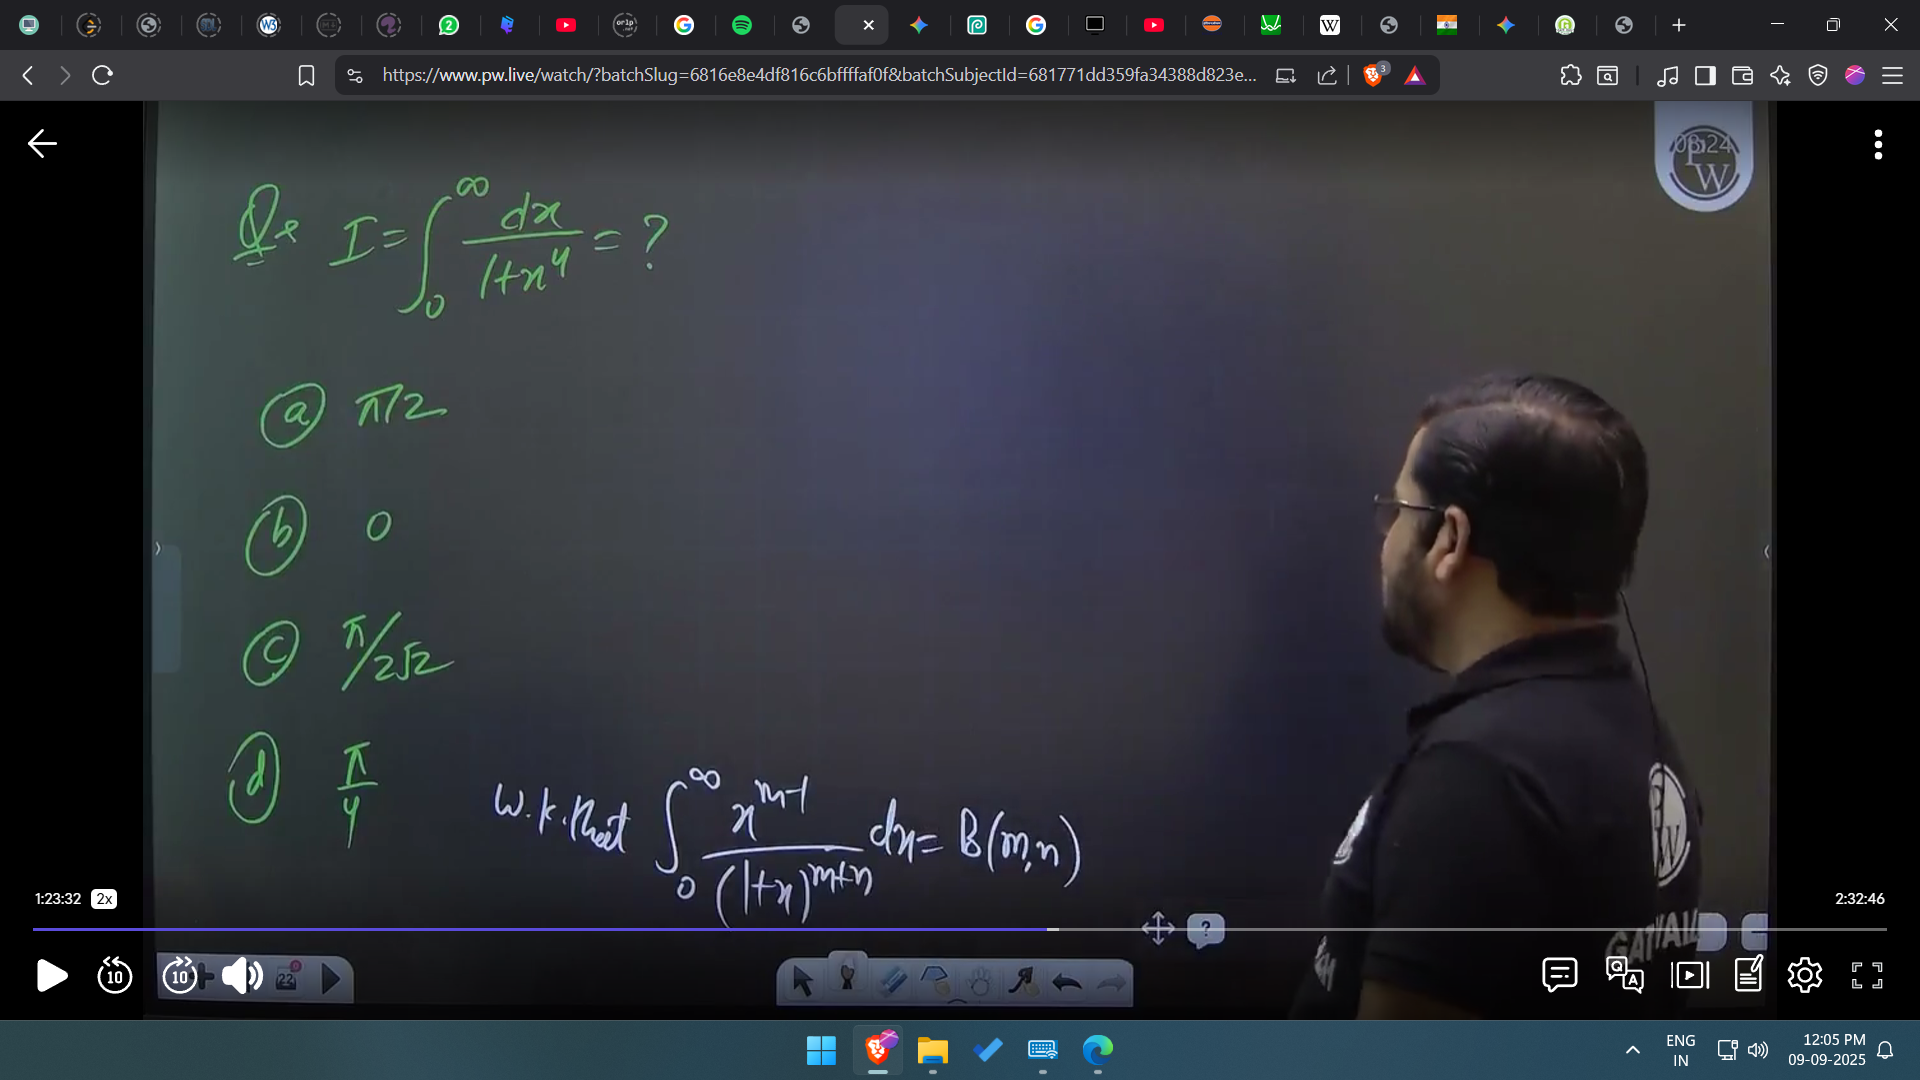 2
3
https://www.pw.live/watch/?batchSlug=6816e8e4df816c6bffffaf0f&batchSubjectId=681771dd359fa34388d823e...
08:24
PW
Q. I = ∫₀^∞ dx/(1+x⁴) = ?
(a) π/2
(b) 0
(c) π/2√2
(d) π/4
W.K.that ∫₀^∞ x^(m-1)/(1+x)^(m+n) dx = B(m,n)
1:23:32 2x
2:32:46
?
10 10 22
ENG
IN
12:05 PM
09-09-2025